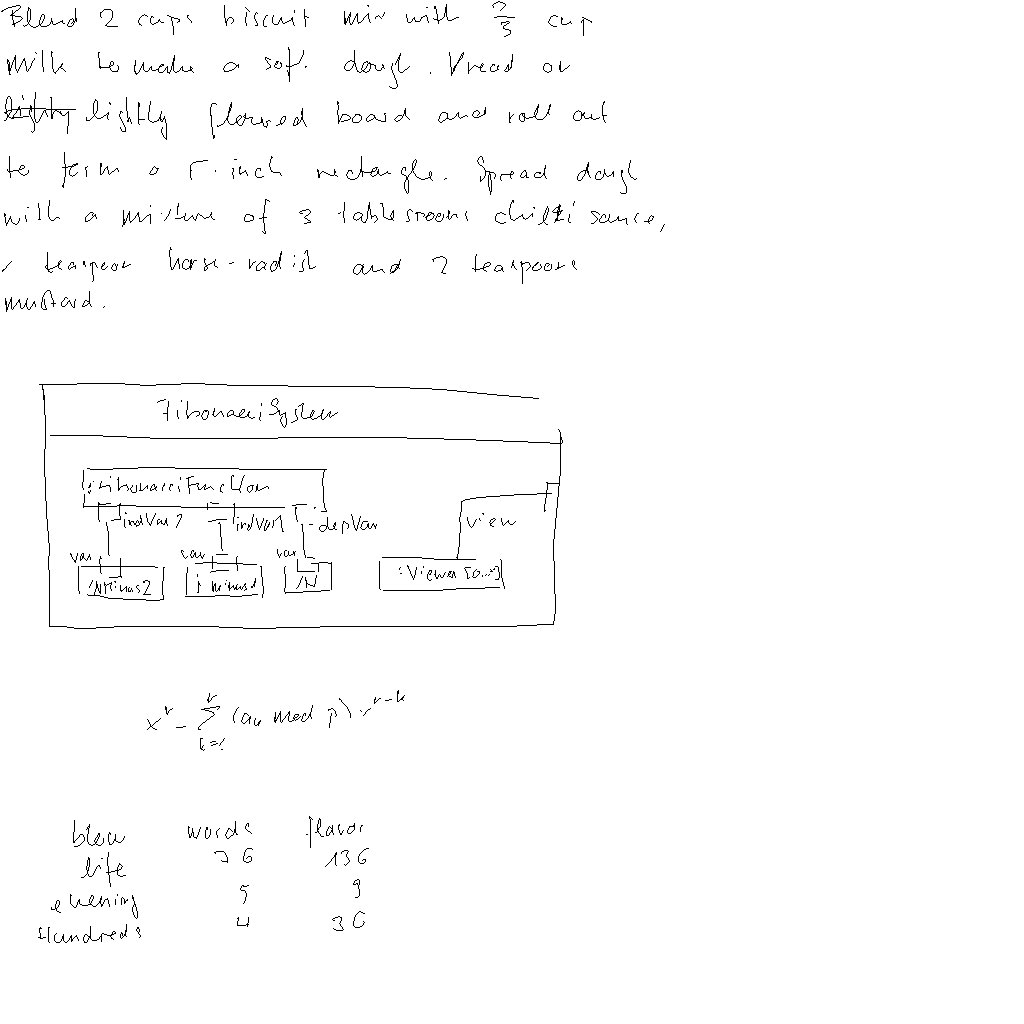 Blend 2 cups biscuit mix with 2/3 cup
milk to make a soft dough. Knead on
lightly floured board and roll out
to form a 5-inch rectangle. Spread dough
with a mixture of 3 tablespoons chili sauce,
1 teaspoon horse-radish and 2 teaspoons
mustard.
FibonacciSystem
:FibonacciFunction
indVar2 indVar1 depVar view
var var var
/NMinus2 /N :Viewer [0..*]
x^r - ∑_{k=1}^{r} (a_k mod p) x^{r-k}
blow words flavor
life 76 136
evening 5 9
Hundreds 4 36